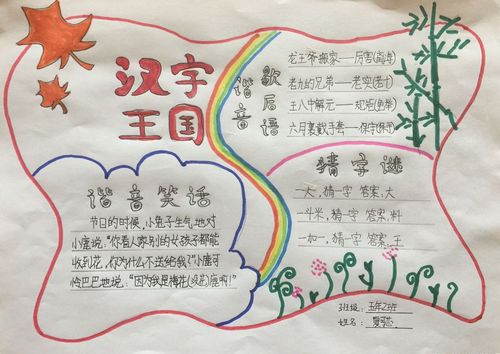 汉字
王国
谐音
歇后语
龙王爷搬家——厉害(离海)
老九的兄弟——老实(老十)
王八中解元——规矩(龟举)
六月裹戴手套——保守(保手)
猜字谜
一大,猜一字 答案,大
一斗米,猜一字 答案,料
一加一,猜一字 答案,王
谐音笑话
节日的时候,小兔子生气地对
小鹿说:“你看人家别的女孩子都能
收到花,你为什么不送给我?”小鹿可
怜巴巴地说:“因为我是梅花(没花)鹿啊!”
班级:五年2班
姓名: